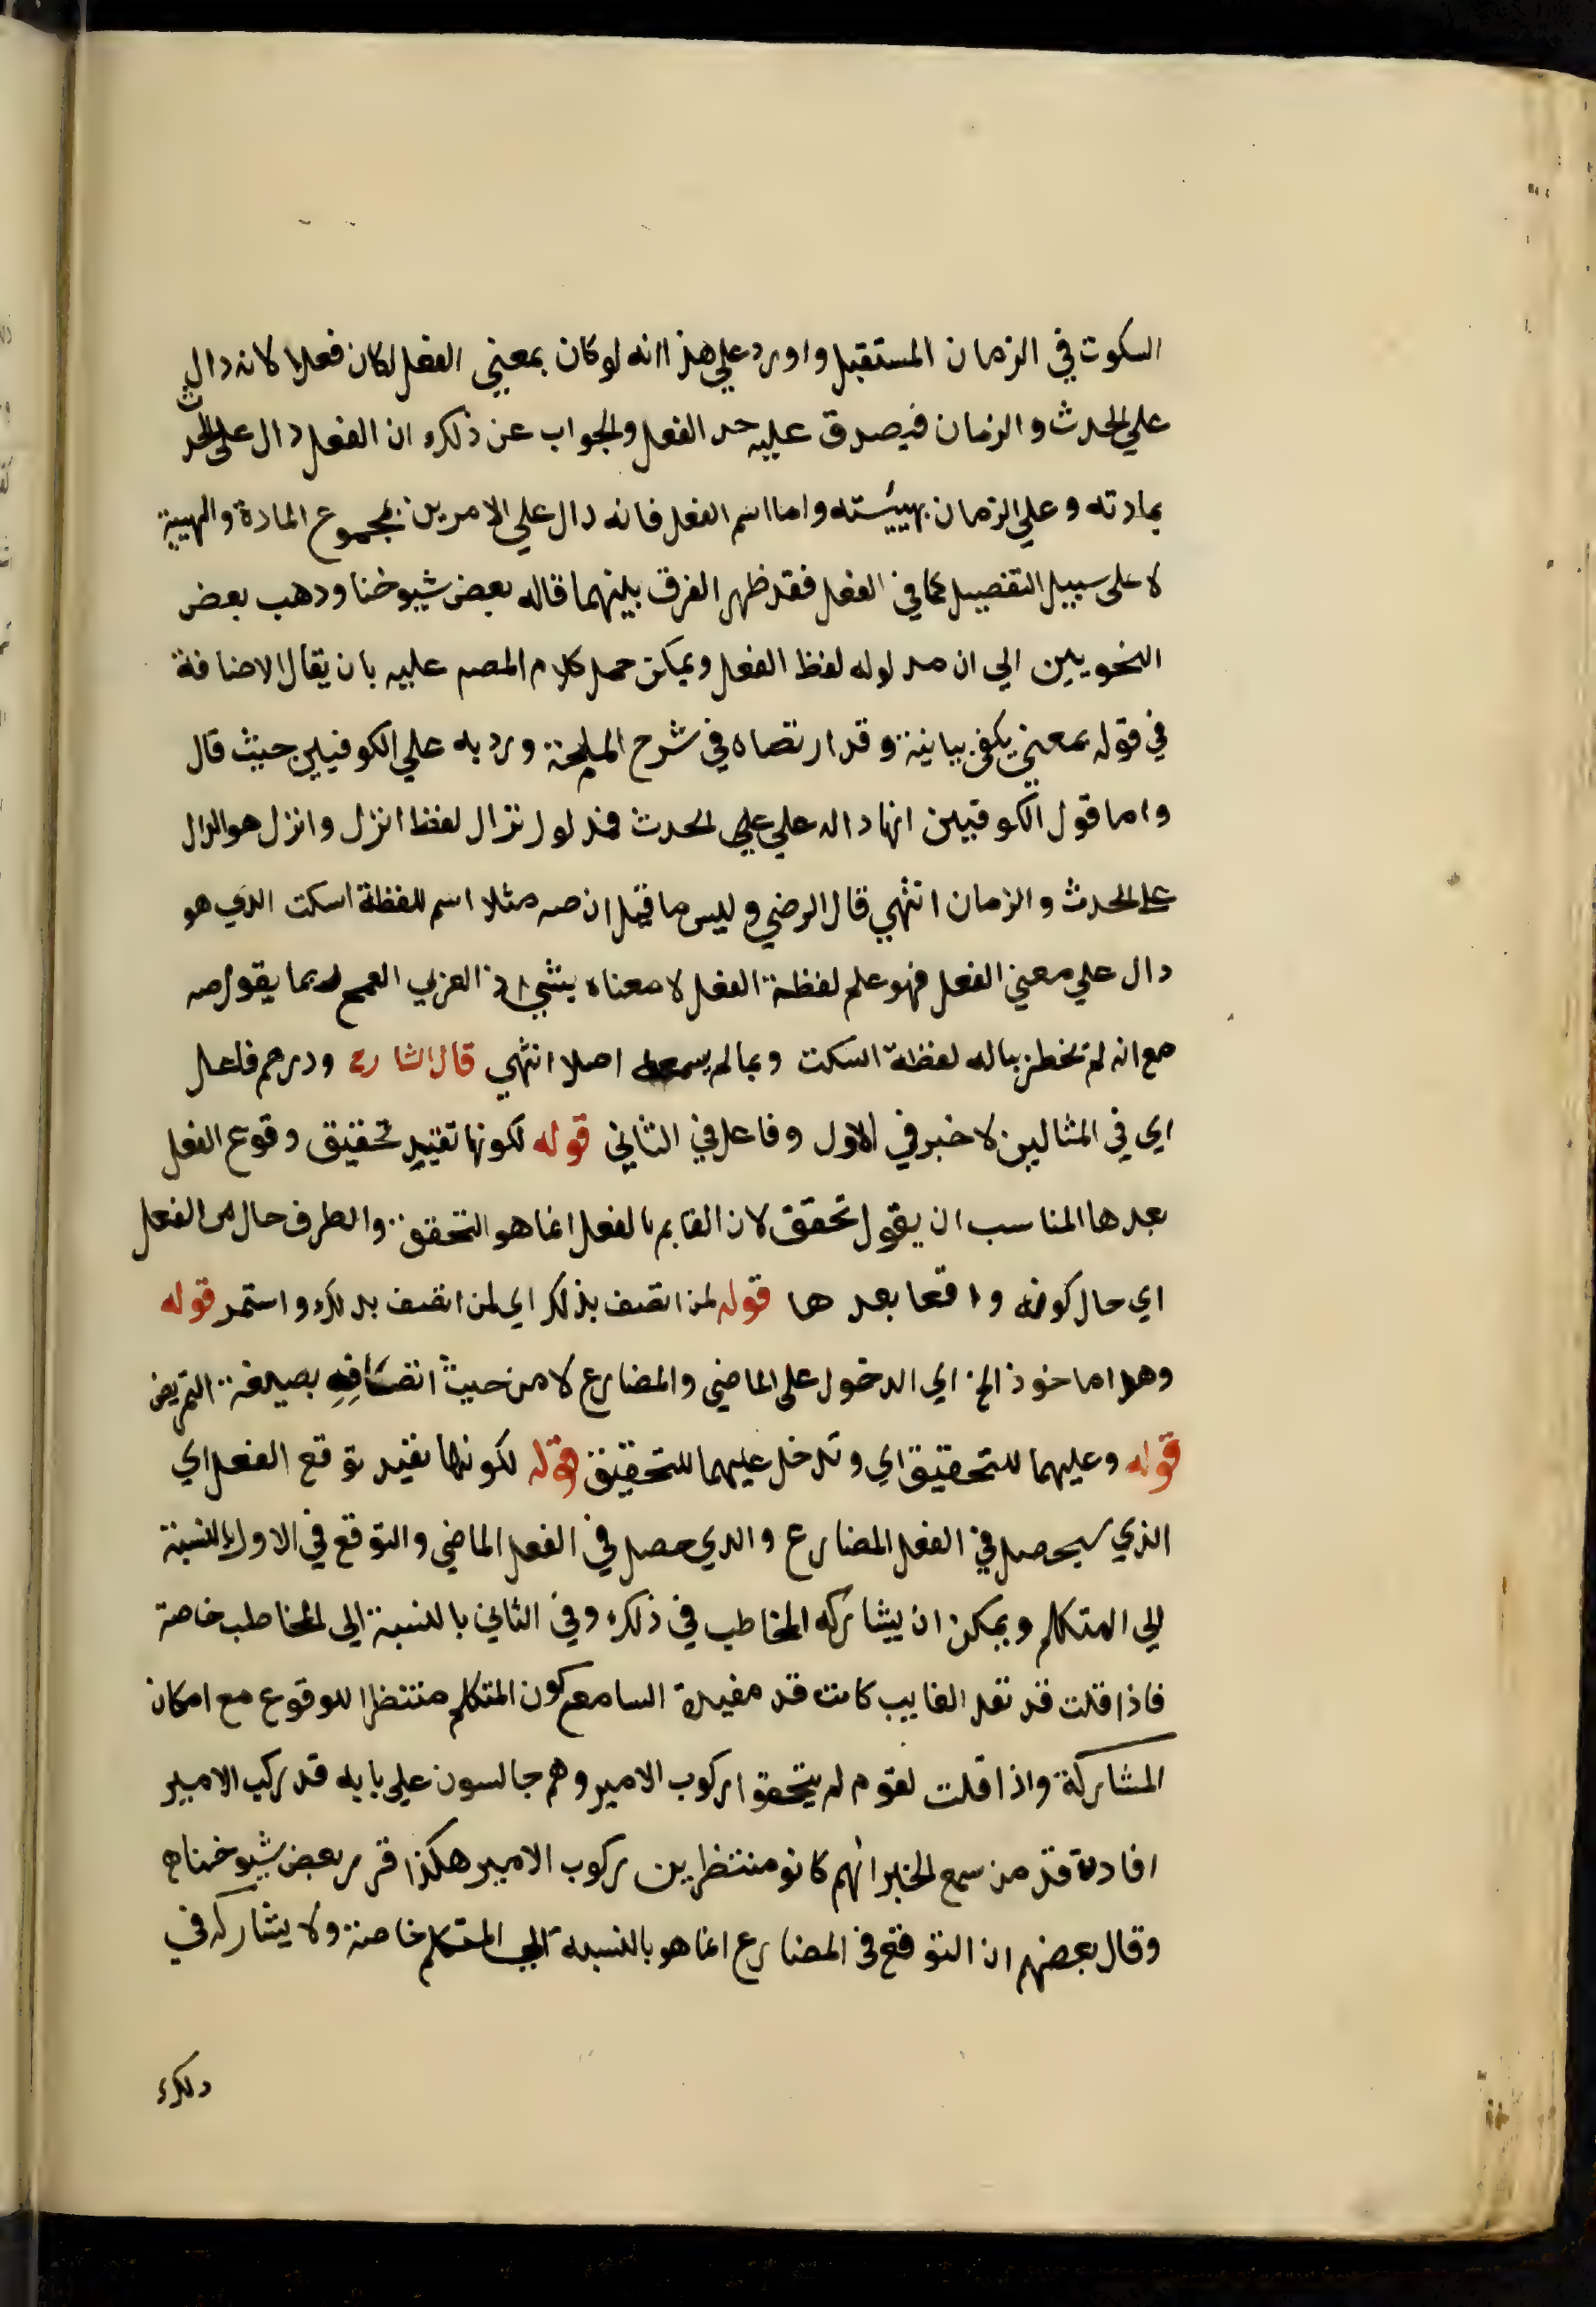 السكوت في الزمان المستقبل واورد علي هذا انه لو كان بمعني الفعل لكان فعلا لانه دال
علي الحدث والزمان فيصدق عليه حد الفعل والجواب عن ذلك ان الفعل دال على الحدث
بمادته وعلي الزمان بهييئته واما اسم الفعل فانه دال علي الامرين بمجموع المادة والهيية
لا على سبيل التفصيل كما في الفعل فقد ظهر الفرق بينهما قاله بعض شيوخنا ودهب بعض
النحويين الي ان مدلوله لفظ الفعل ويمكن حمل كلام المصم عليه بان يقال الاضافة
في قوله بمعني يكفي بيانية وقد ارتضاه في شرح الملحة ورد به علي الكوفيين حيث قال
واما قول الكوفيين انها داله علي علي الحدث فمدلول نزال لفظ انزل وانزل هو الدال
على الحدث والزمان انتهي قال الرضي وليس ما قيل ان صه مثلا اسم للفظة اسكت الذي هو
دال علي معني الفعل فهو علم لفظة الفعل لا معناه بشي اذ العربي القح ربما يقول صه
مع انه لم يخطر بباله لفظة اسكت وبما لم يسمعه اصلا انتهي قال الشارح ودرهم فاعل
اي في المثالين لا خبر في الاول وفاعل في الثاني قوله لكونها تفيد تحقيق وقوع الفعل
بعدها المناسب ان يقول تحقق لان القايم بالفعل انما هو التحقق والظرف حال من الفعل
اي حال كونه واقعا بعدها قوله لمن اتصف بذلك اي لمن اتصف بدلك واستمر قوله
وهو اما خوذ الخ اي الدخول على الماضي والمضارع لا من حيث اتصافه بصيغة التمريض
قوله وعليهما للتحقيق اي وتدخل عليهما للتحقيق قوله لكونها تفيد توقع الفعل اي
الذي سيحصل في الفعل المضارع والدي حصل في الفعل الماضي والتوقع في الاول بالنسبة
الي المتكلم ويمكن ان يشاركه المخاطب في ذلك وفي الثاني بالنسبة الي المخاطب خاصة
فاذا قلت قد تقد الغايب كانت قد مفيدة السامع كون المتكلم منتظرا للوقوع مع امكان
المشاركة واذا قلت لقوم لم يتحققوا ركوب الامير وهم جالسون علي بابه قد ركب الامير
افادت قد من سمع الخبر انهم كانو منتظرين ركوب الامير هكذا قرر بعض شيوخنا ه
وقال بعضهم ان التوقع في المضارع انما هو بالنسبة الي المتكلم خاصة ولا يشاركه في
دلك